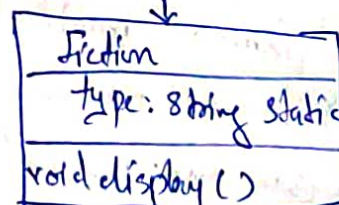 Fiction
type: String static
void display()